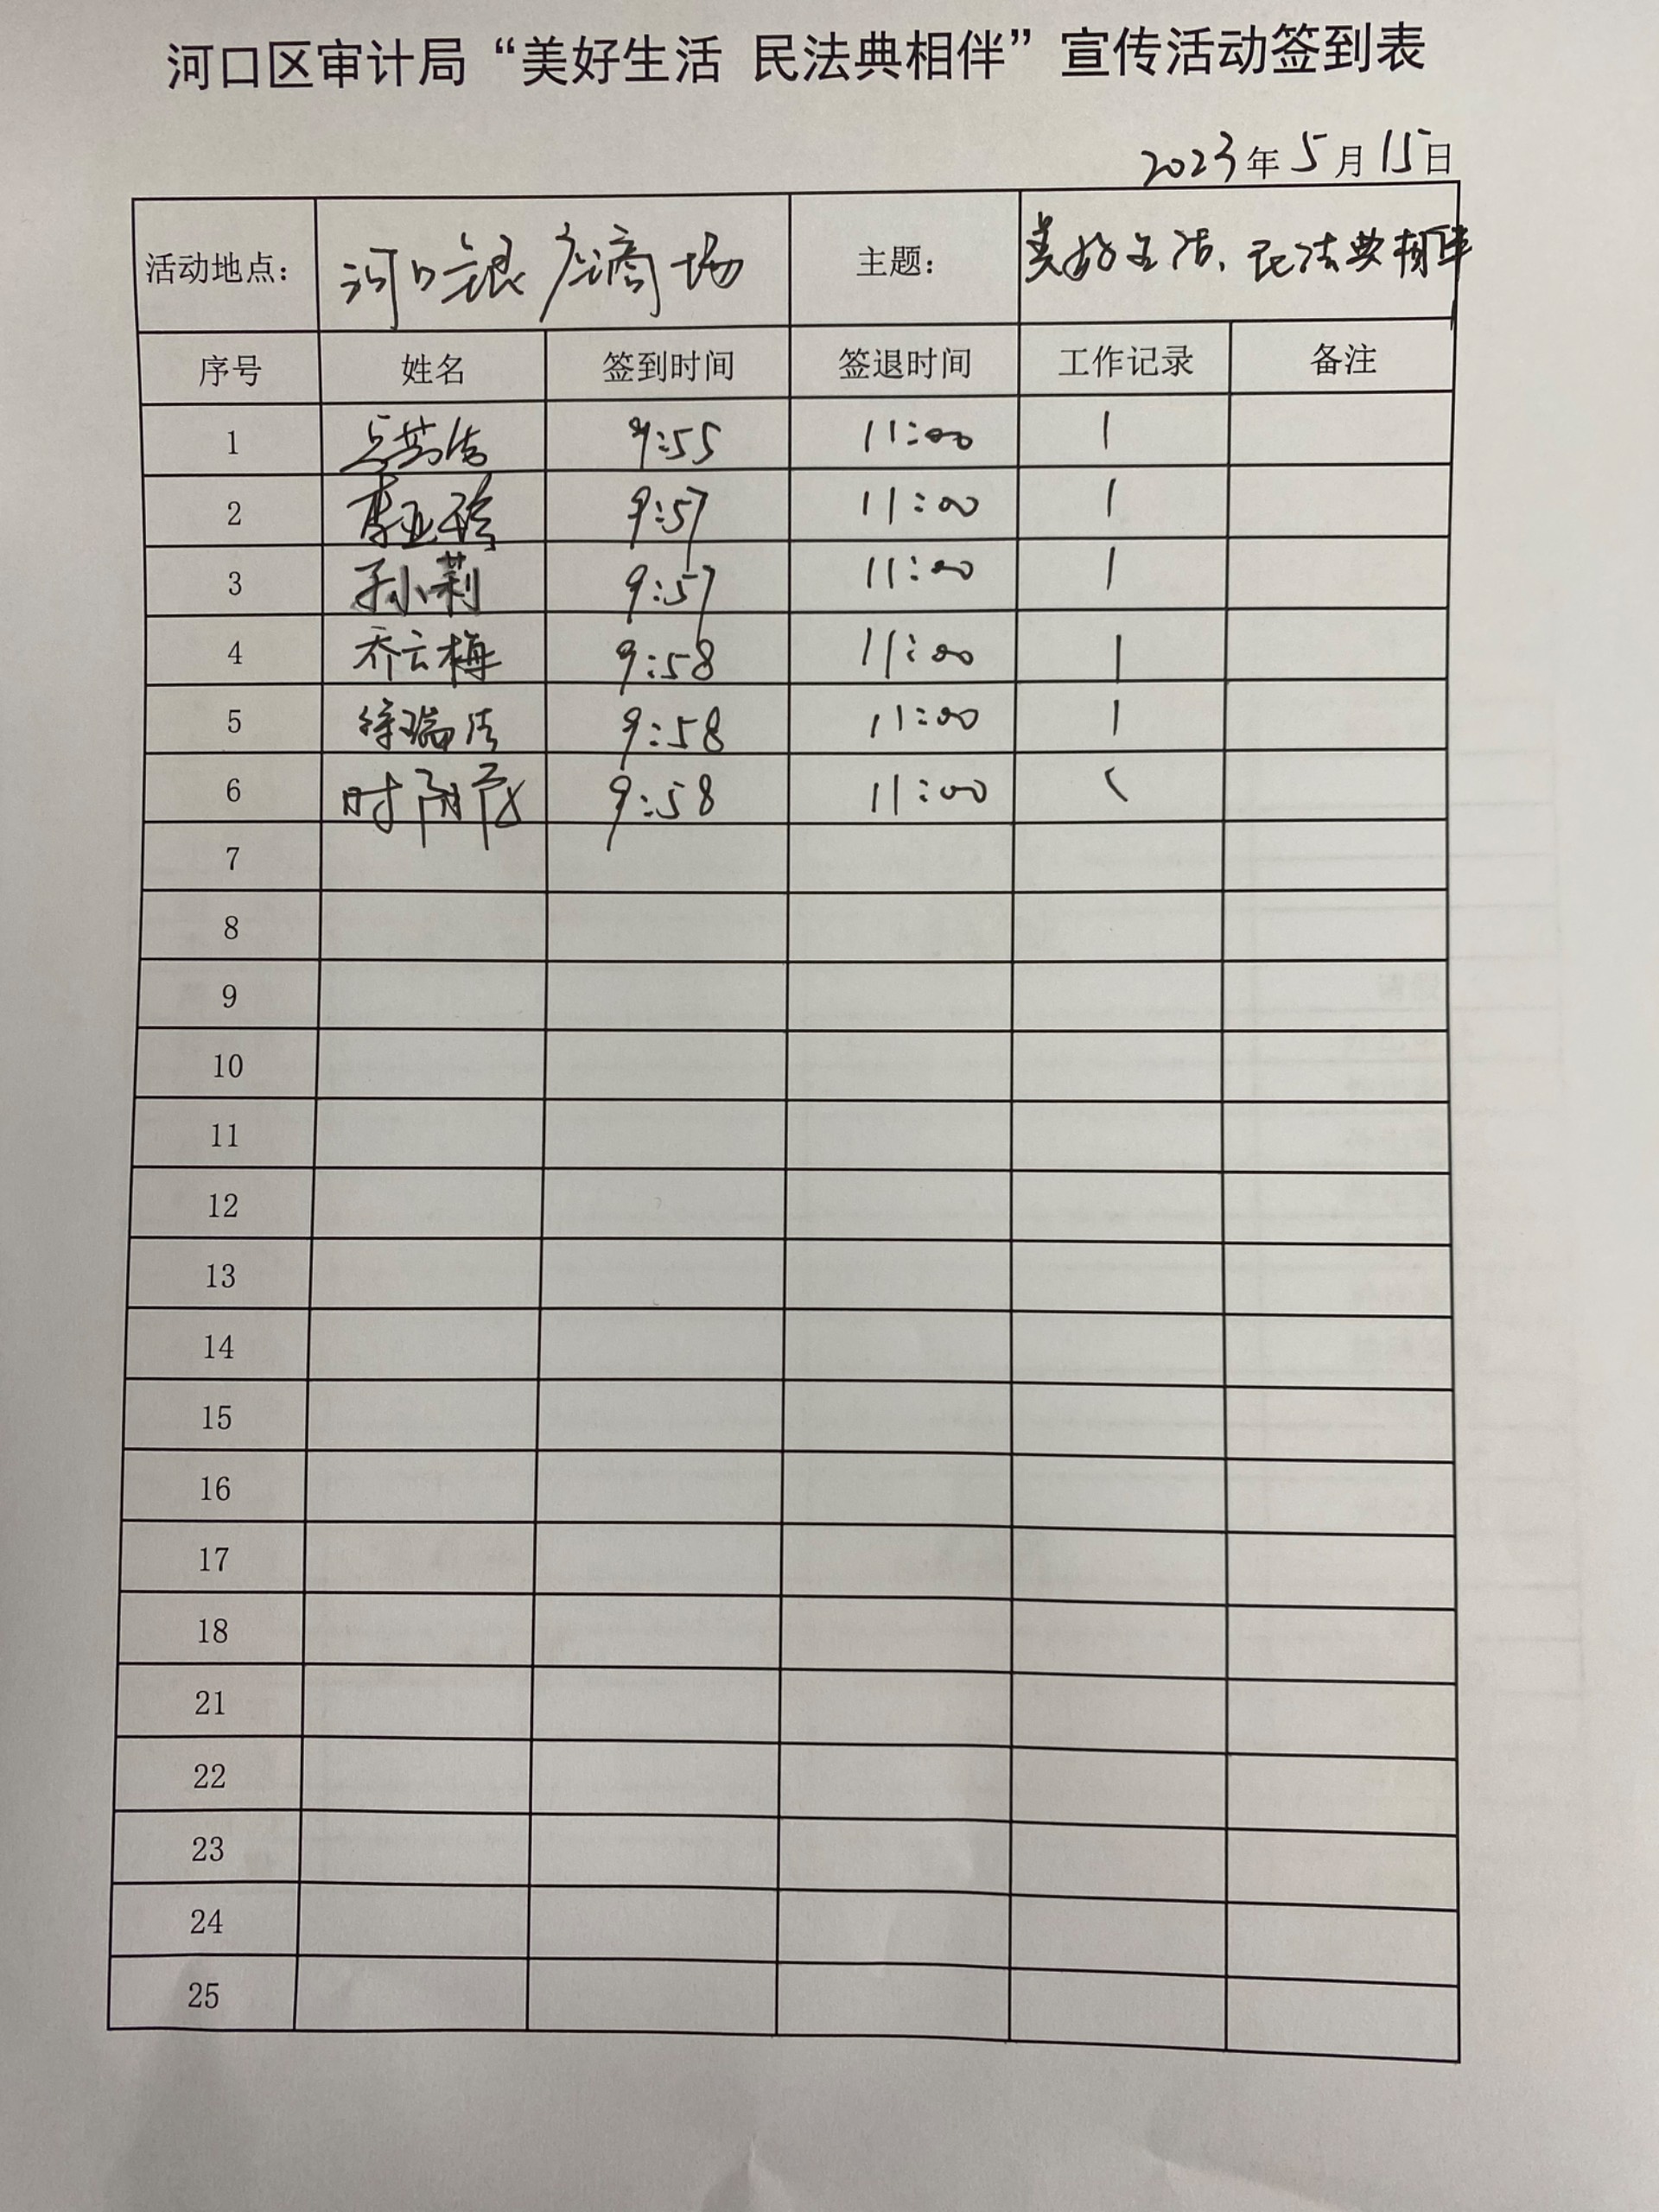 河口区审计局“美好生活 民法典相伴”宣传活动签到表
2023年5月15日
活动地点： 河口银广商场 主题： 美好生活、民法典相伴
序号 姓名 签到时间 签退时间 工作记录 备注
1 9:55 11:00 1
2 李亚玲 9:57 11:00 1
3 孙莉 9:57 11:00 1
4 乔云梅 9:58 11:00 1
5 徐瑞洁 9:58 11:00 1
6 时 9:58 11:00
7
8
9
10
11
12
13
14
15
16
17
18
21
22
23
24
25